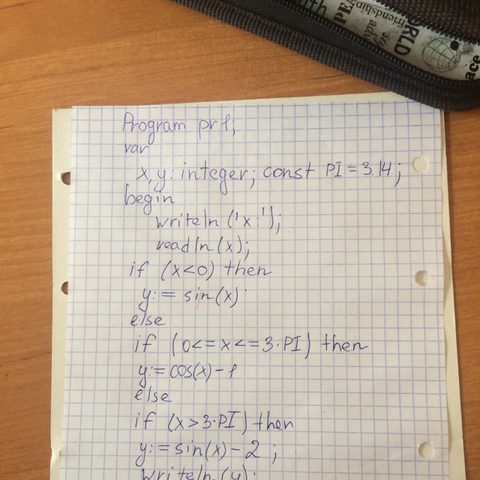 ORLD
friendship
Program pr1;
var
x,y: integer; const PI = 3.14;
begin
writeln ('x:');
readln (x);
if (x<0) then
y:= sin(x)
else
if (0<= x <= 3·PI) then
y:= cos(x) - 1
else
if (x>3·PI) then
y:= sin(x) - 2 ;
writeln (y);